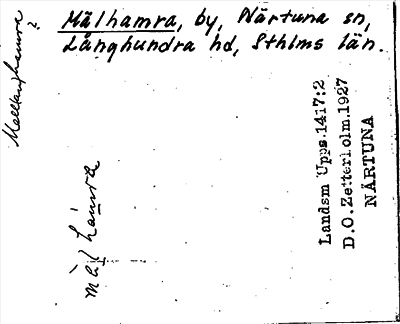 Mälhamra, by, Närtuna sn,
Långhundra hd, Sthlms län.
Mellanhamra
?
mä̀l hàmra
Landsm Upps.1417:2
D.O.Zetterholm.1927
NÄRTUNA